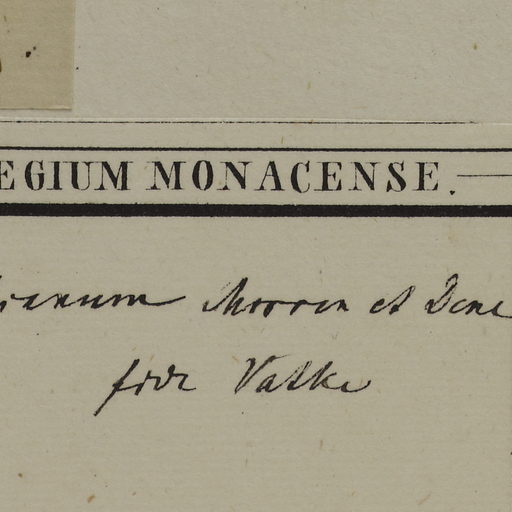 EGIUM MONACENSE.
Morren et Dene
fide Vatke